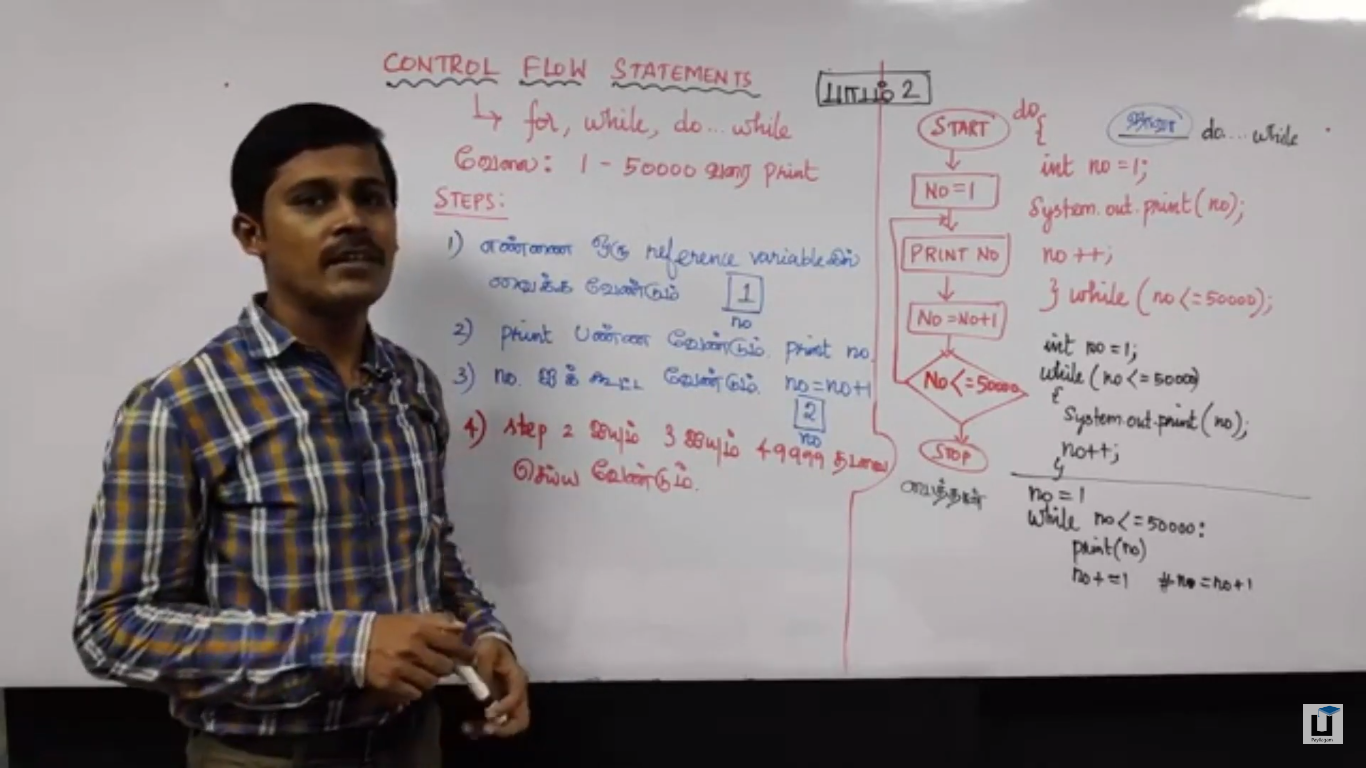 CONTROL FLOW STATEMENTS
↳ for, while, do...while
வேலை: 1 - 50000 வரை print
STEPS:
1) எண்ணை ஒரு reference variableலில்
வைக்க வேண்டும் 1
no
2) print பண்ண வேண்டும். print no.
3) no. ஐக் கூட்ட வேண்டும். no=no+1
2
no
4) step 2 ஐயும் 3 ஐயும் 49999 தடவை
செய்ய வேண்டும்.
பாடம் 2
START
NO=1
PRINT NO
NO=NO+1
NO<=50000
STOP
பைத்தான்
ஜாவா do...while
do
{
int no=1;
System.out.print(no);
no++;
} while (no<=50000);
int no=1;
while (no<=50000)
{
System.out.print(no);
no++;
}
no=1
while no<=50000:
print(no)
no+=1 #no=no+1
Payilagam